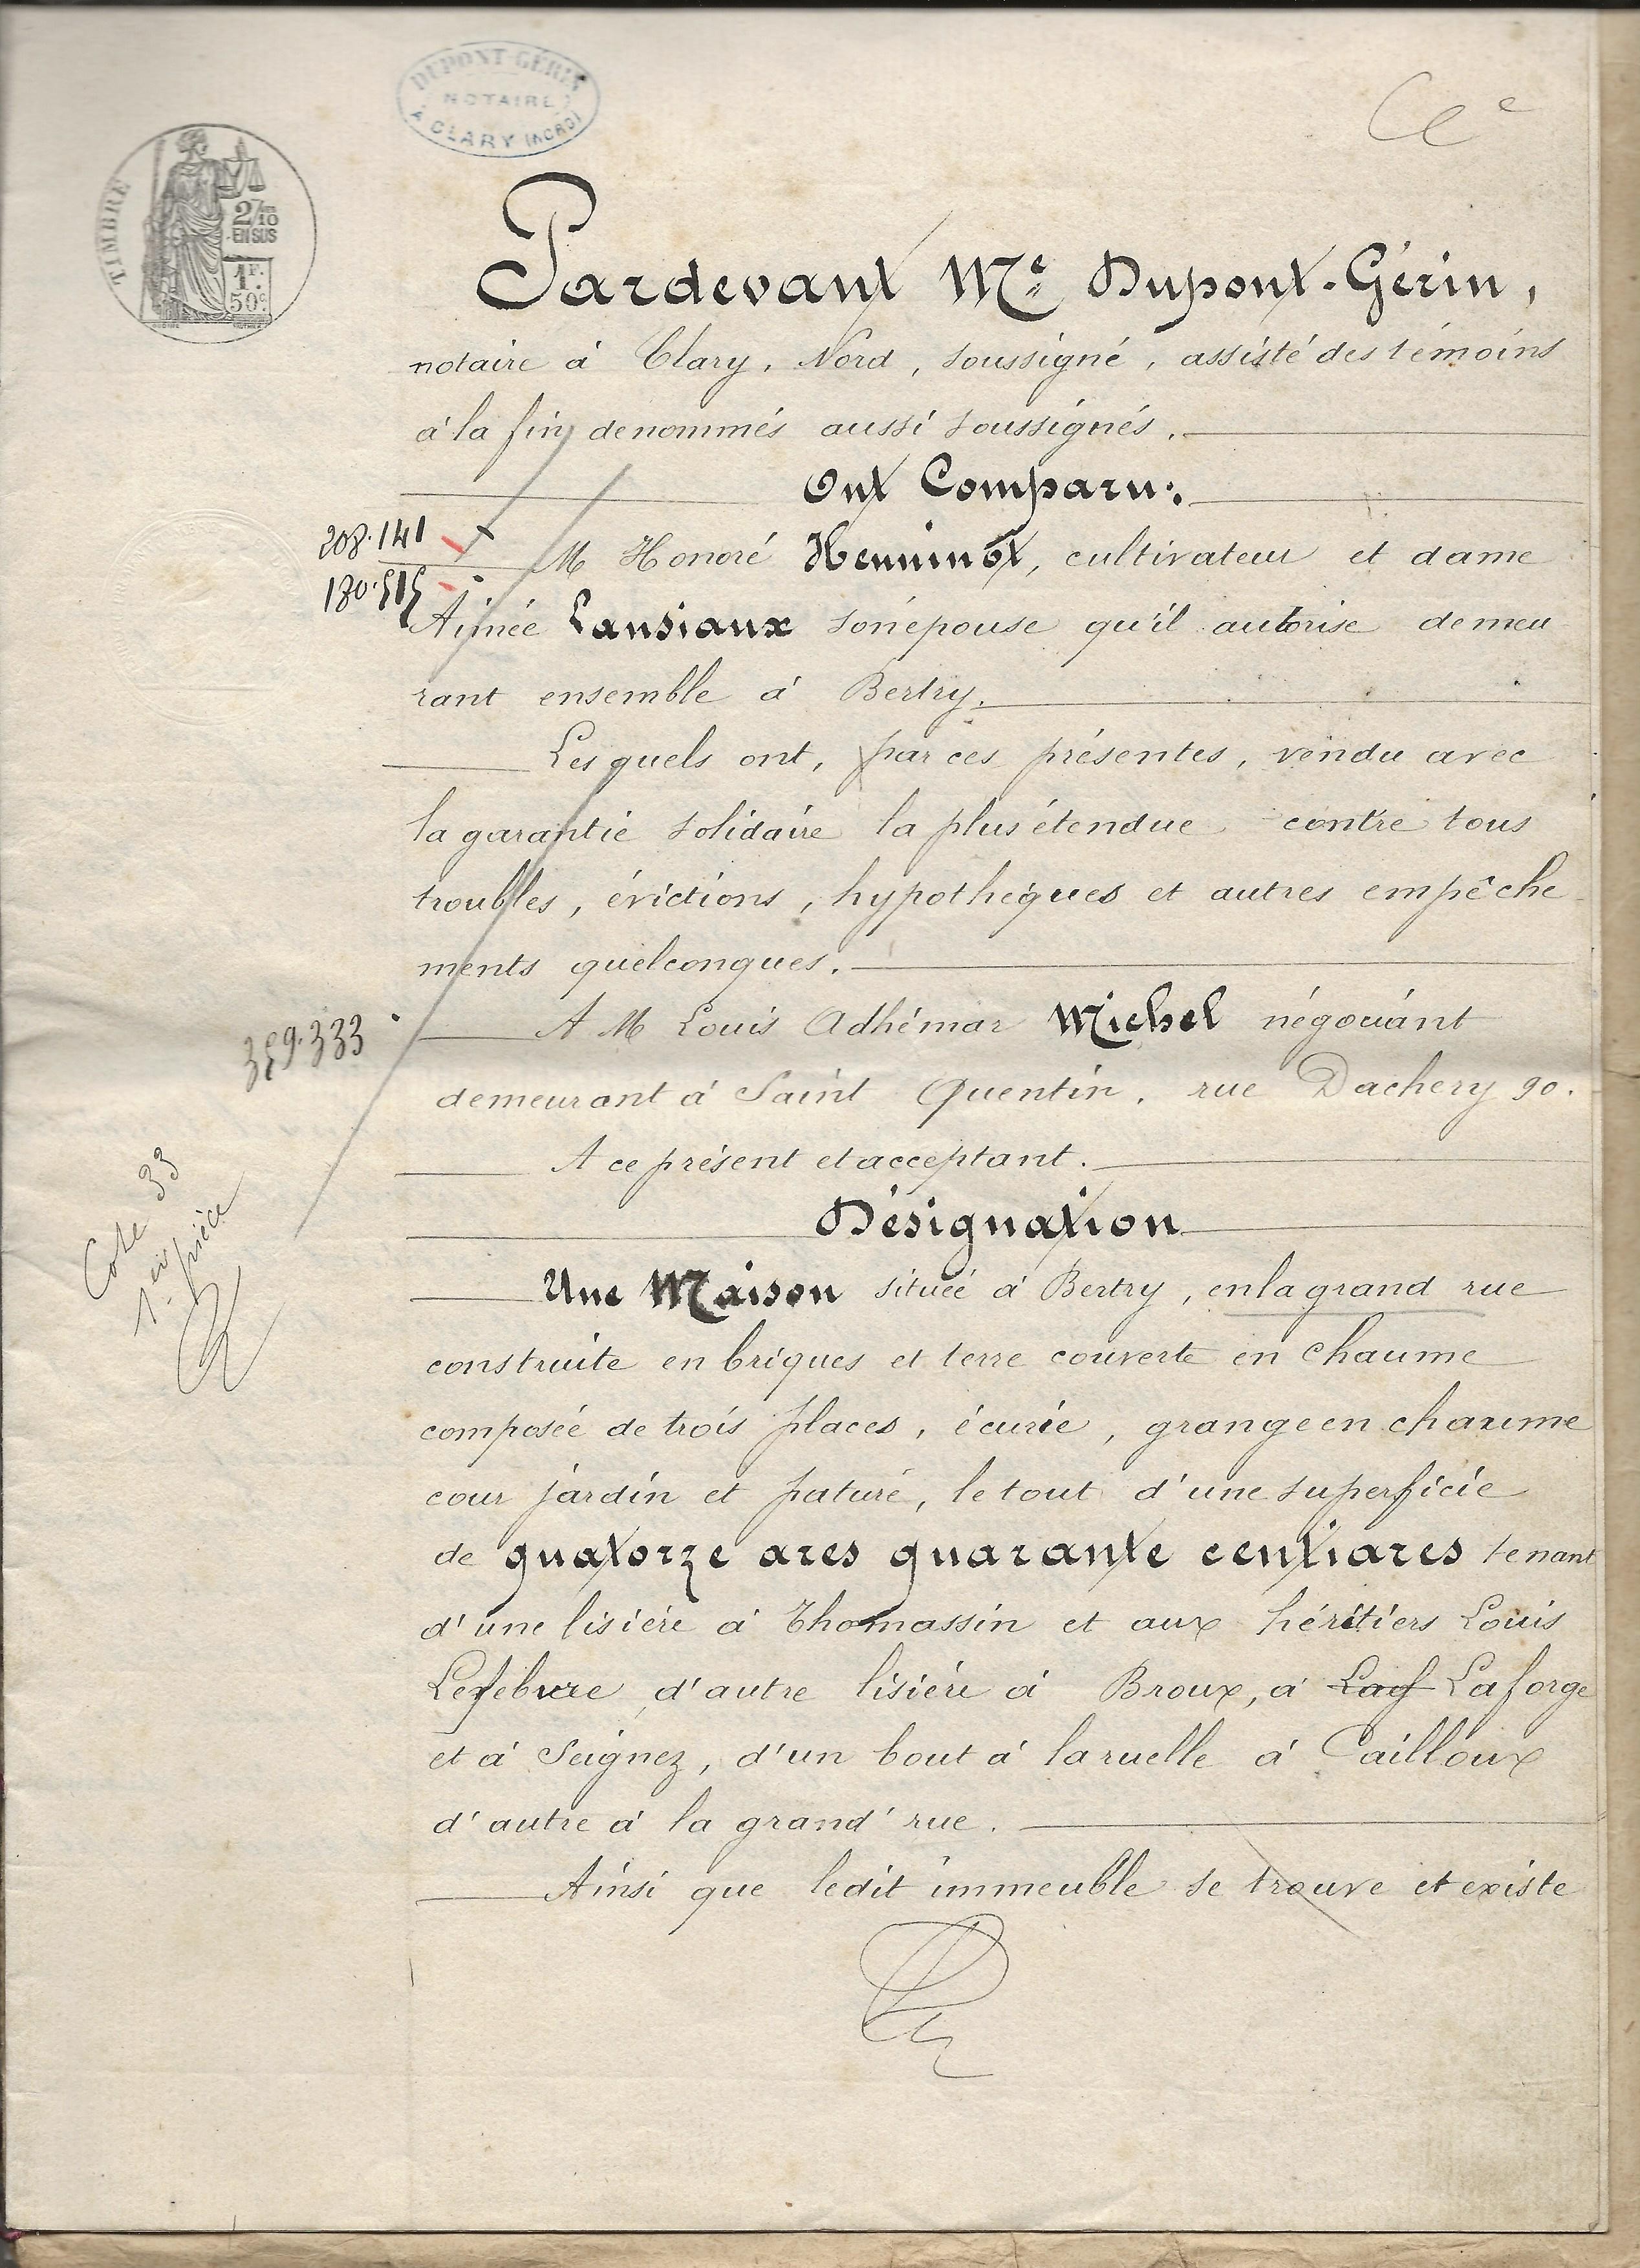 DUPONT-GÉRIN
NOTAIRE
A CLARY (NORD)
TIMBRE
2/10
EN SUS
1F.
50c.
Pardevant Me Dupont-Gérin,
notaire à Clary, Nord, soussigné, assisté des témoins
à la fin denommés aussi soussignés.
Ont Comparu:
208.141
M Honoré Henninot, cultivateur et dame
180.515
Aimée Lansiaux son épouse qu'il autorise demeu
rant ensemble à Bertry.
Lesquels ont, par ces présentes, vendu avec
la garantie solidaire la plus étendue contre tous
troubles, évictions, hypothèques et autres empêche
ments quelconques.
A M Louis Adhémar Michel négociant
359.333
demeurant à Saint Quentin, rue Dachery 90.
A ce présent et acceptant.
Cote 33
1ere pièce
Désignation
Une Maison située à Bertry, en la grand rue
construite en briques et terre couverte en chaume
composée de trois places, écurie, grange en chaume
cour jardin et pature, le tout d'une superficie
de quatorze ares quarante centiares tenant
d'une lisière à Thomassin et aux héritiers Louis
Lefebvre, d'autre lisière à Broux, à Laf Laforge
et à Seignez, d'un bout à la ruelle à Cailloux
d'autre à la grand' rue.
Ainsi que ledit immeuble se trouve et existe